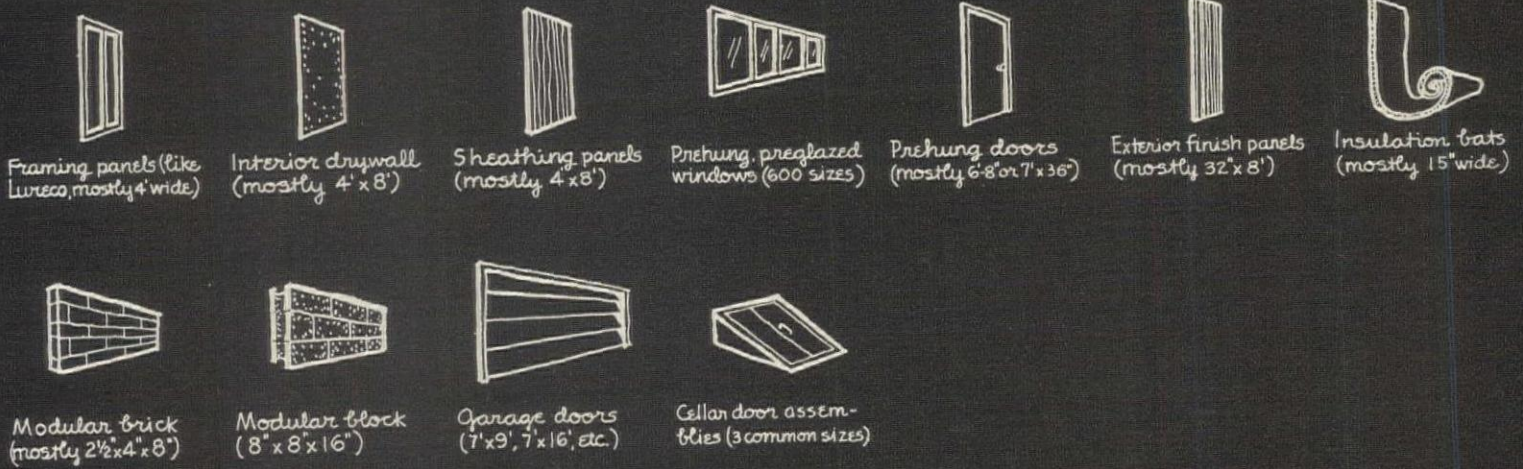 Framing panels (like
Lureco, mostly 4' wide)
Interior drywall
(mostly 4' x 8')
Sheathing panels
(mostly 4' x 8')
Prehung, preglazed
windows (600 sizes)
Prehung doors
(mostly 6'-8" or 7' x 36")
Exterior finish panels
(mostly 32" x 8')
Insulation bats
(mostly 15" wide)
Modular brick
(mostly 2½" x 4" x 8")
Modular block
(8" x 8" x 16")
Garage doors
(7' x 9', 7' x 16', etc.)
Cellar door assem-
blies (3 common sizes)